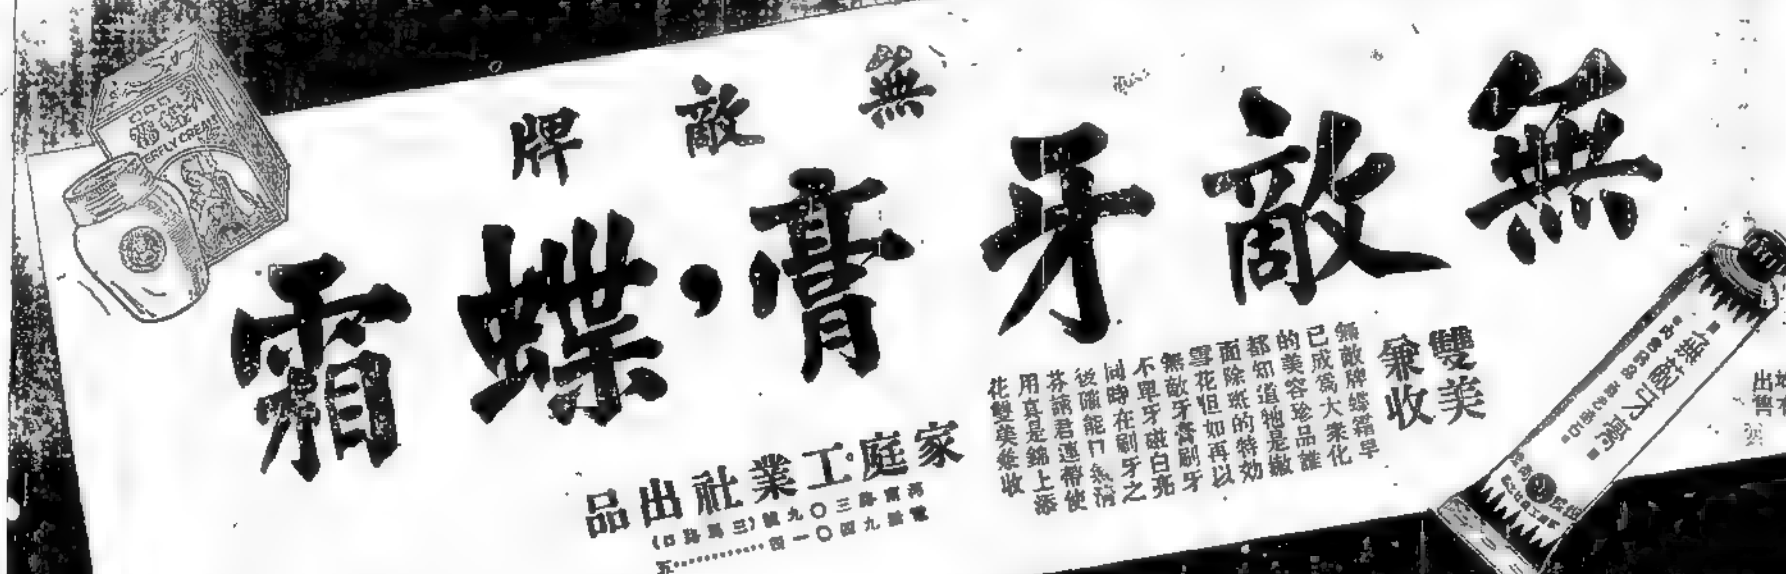 無敵牌
無敵牙膏，蝶霜
雙美
兼收
無敵牌蝶霜早
已成為大衆化
的美容珍品誰
都知道牠是嫩
面除斑的特効
雪花但如再以
無敵牙膏刷牙
不單牙磁白亮
同時在刷牙之
後確能口氣清
芬請君連帶使
用真是錦上添
花雙美兼收
家庭工業社出品
河南路三〇九號(三馬路口)
電話九四〇一四
五
EFFLY CREAM
無敵牙膏
出售